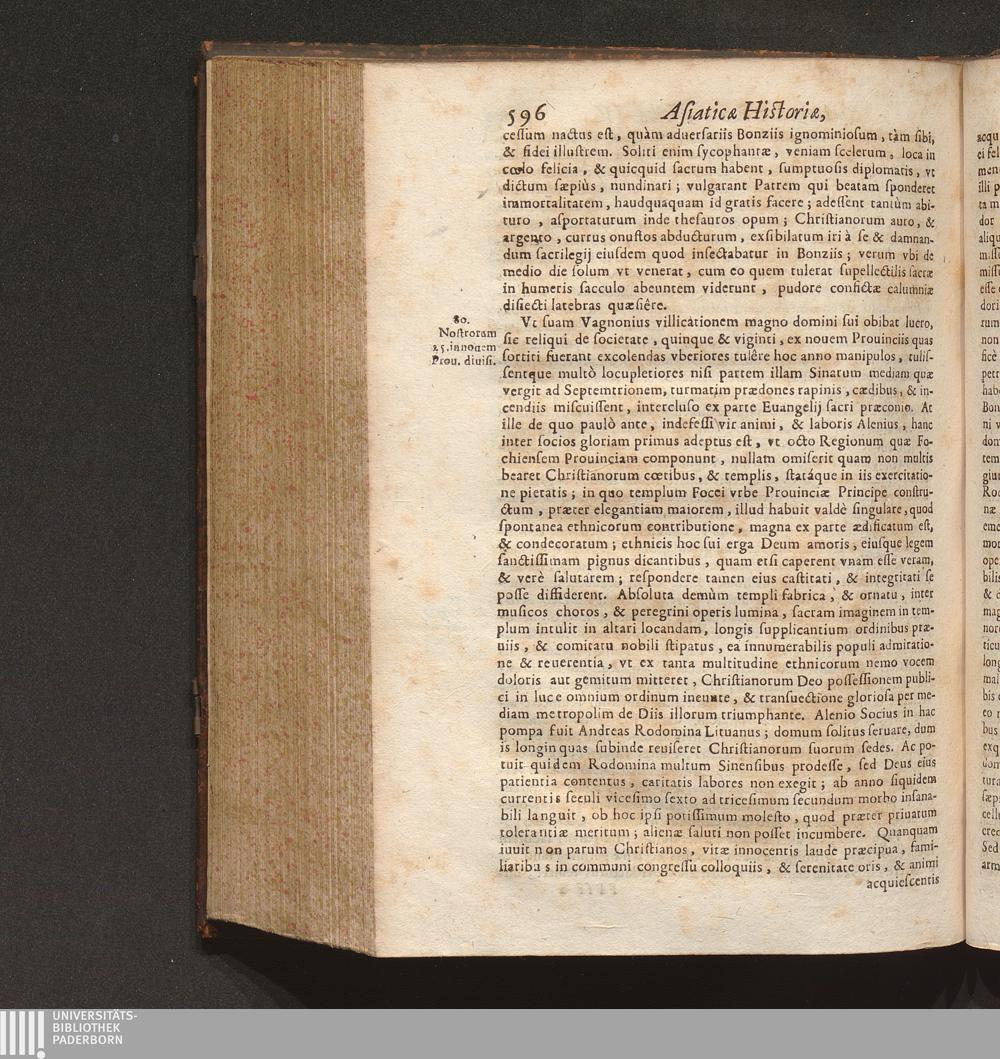 596 Aſiaticæ Hiſtoriæ,
ceſſum nactus eſt, quàm aduerſariis Bonziis ignominioſum, tàm ſibi,
& fidei illuſtrem. Soliti enim ſycophantæ, veniam ſcelerum, loca in
cœlo felicia, & quicquid ſacrum habent, ſumptuoſis diplomatis, vt
dictum ſæpiùs, nundinari; vulgarant Patrem qui beatam ſponderet
immortalitatem, haudquaquam id gratis facere; adeſſent tantùm abi-
turo, aſportaturum inde theſauros opum; Chriſtianorum auro, &
argento, currus onuſtos abducturum, exſibilatum iri à ſe & damnan-
dum ſacrilegij eiuſdem quod inſectabatur in Bonziis; verum vbi de
medio die ſolum vt venerat, cum eo quem tulerat ſupellectilis ſacræ
in humeris ſacculo abeuntem viderunt, pudore confictæ calumniæ
diſiecti latebras quæſiêre.
80.
Noſtroram
25. in nouem
Prou. diuiſi.
Vt ſuam Vagnonius villicationem magno domini ſui obibat lucro,
ſic reliqui de ſocietate, quinque & viginti, ex nouem Prouinciis quas
ſortiti fuerant excolendas vberiores tulêre hoc anno manipulos, tuliſ-
ſentque multò locupletiores niſi partem illam Sinarum mediam quæ
vergit ad Septemtrionem, turmatim prædones rapinis, cædibus, & in-
cendiis miſcuiſſent, intercluſo ex parte Euangelij ſacri præconio. At
ille de quo paulò ante, indefeſſi vir animi, & laboris Alenius, hanc
inter ſocios gloriam primus adeptus eſt, vt octo Regionum quæ Fo-
chienſem Prouinciam componunt, nullam omiſerit quam non multis
bearet Chriſtianorum cœtibus, & templis, ſtatáque in iis exercitatio-
ne pietatis; in quo templum Focei vrbe Prouinciæ Principe conſtru-
ctum, præter elegantiam maiorem, illud habuit valdè ſingulare, quod
ſpontanea ethnicorum contributione, magna ex parte ædificatum eſt,
& condecoratum; ethnicis hoc ſui erga Deum amoris, eiuſque legem
ſanctiſſimam pignus dicantibus, quam etſi caperent vnam eſſe veram,
& verè ſalutarem; reſpondere tamen eius caſtitati, & integritati ſe
poſſe diffiderent. Abſoluta demùm templi fabrica, & ornatu, inter
muſicos choros, & peregrini operis lumina, ſacram imaginem in tem-
plum intulit in altari locandam, longis ſupplicantium ordinibus præ-
uiis, & comitatu nobili ſtipatus, ea innumerabilis populi admiratio-
ne & reuerentia, vt ex tanta multitudine ethnicorum nemo vocem
doloris aut gemitum mitteret, Chriſtianorum Deo poſſeſſionem publi-
ci in luce omnium ordinum ineunte, & tranſuectione glorioſa per me-
diam metropolim de Diis illorum triumphante. Alenio Socius in hac
pompa fuit Andreas Rodomina Lituanus; domum ſolitus ſeruare, dum
is longinquas ſubinde reuiſeret Chriſtianorum ſuorum ſedes. Ac po-
tuit quidem Rodomina multum Sinenſibus prodeſſe, ſed Deus eius
patientia contentus, caritatis labores non exegit; ab anno ſiquidem
currentis ſeculi viceſimo ſexto ad triceſimum ſecundum morbo inſana-
bili languit, ob hoc ipſi potiſſimum moleſto, quod præter priuatum
tolerantiæ meritum; alienæ ſaluti non poſſet incumbere. Quanquam
iuuit non parum Chriſtianos, vitæ innocentis laude præcipua, fami-
liaribus in communi congreſſu colloquiis, & ſerenitate oris, & animi
acquieſcentis
UNIVERSITÄTS-
BIBLIOTHEK
PADERBORN